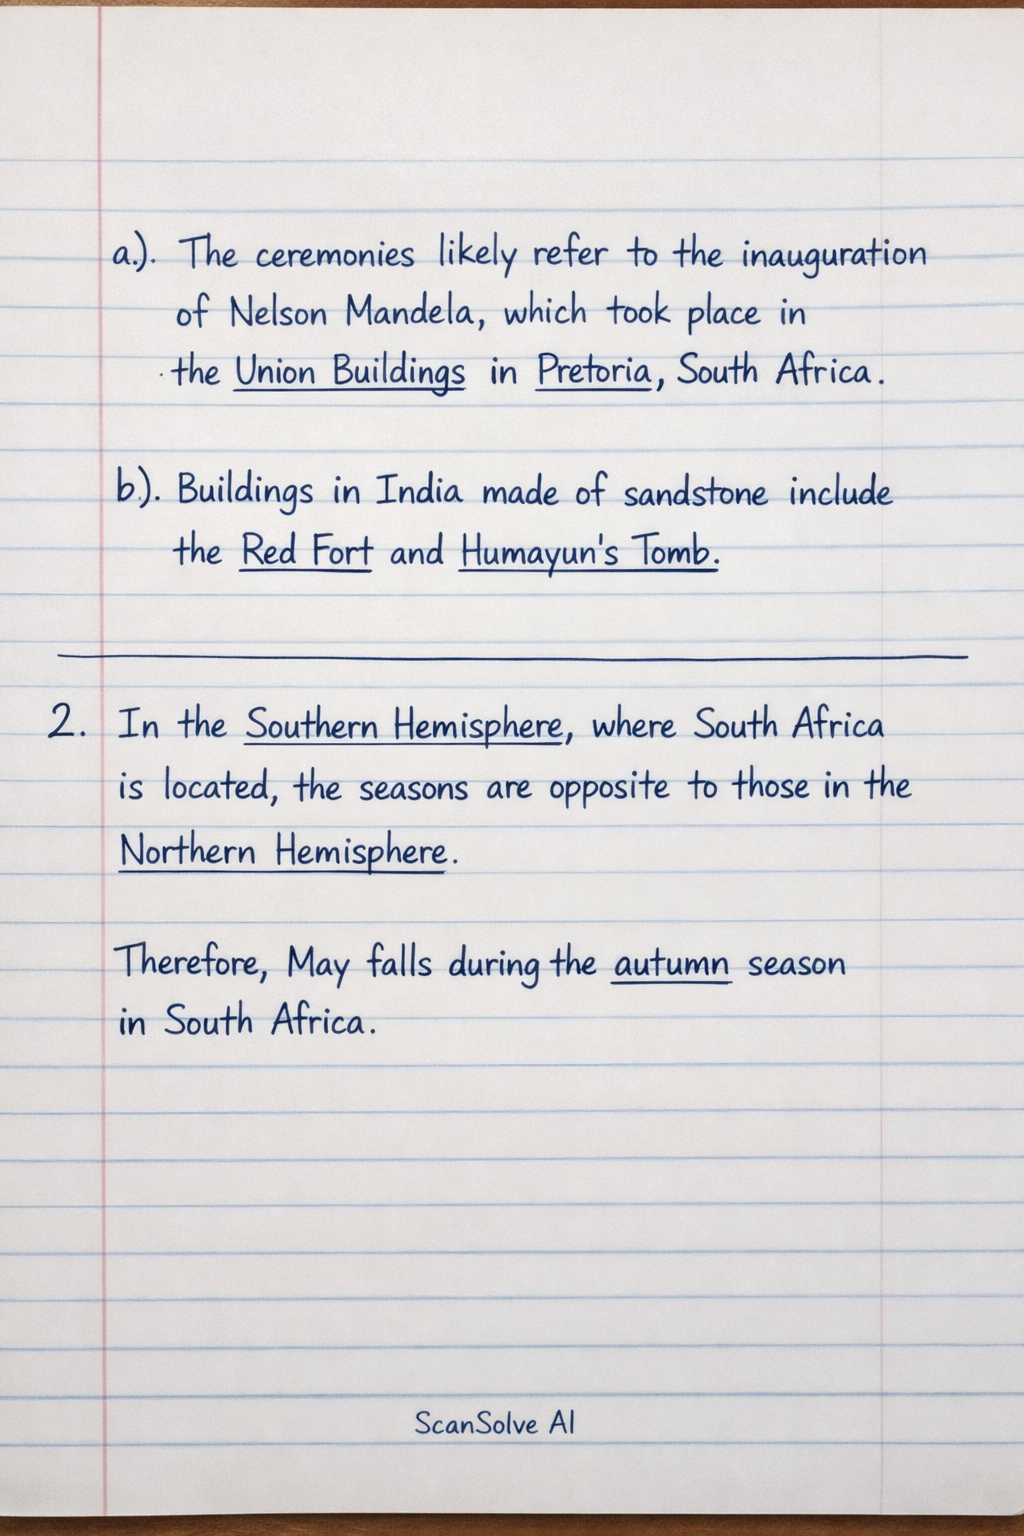 a.). The ceremonies likely refer to the inauguration
of Nelson Mandela, which took place in
the Union Buildings in Pretoria, South Africa.
b.). Buildings in India made of sandstone include
the Red Fort and Humayun's Tomb.
2. In the Southern Hemisphere, where South Africa
is located, the seasons are opposite to those in the
Northern Hemisphere.
Therefore, May falls during the autumn season
in South Africa.
ScanSolve AI